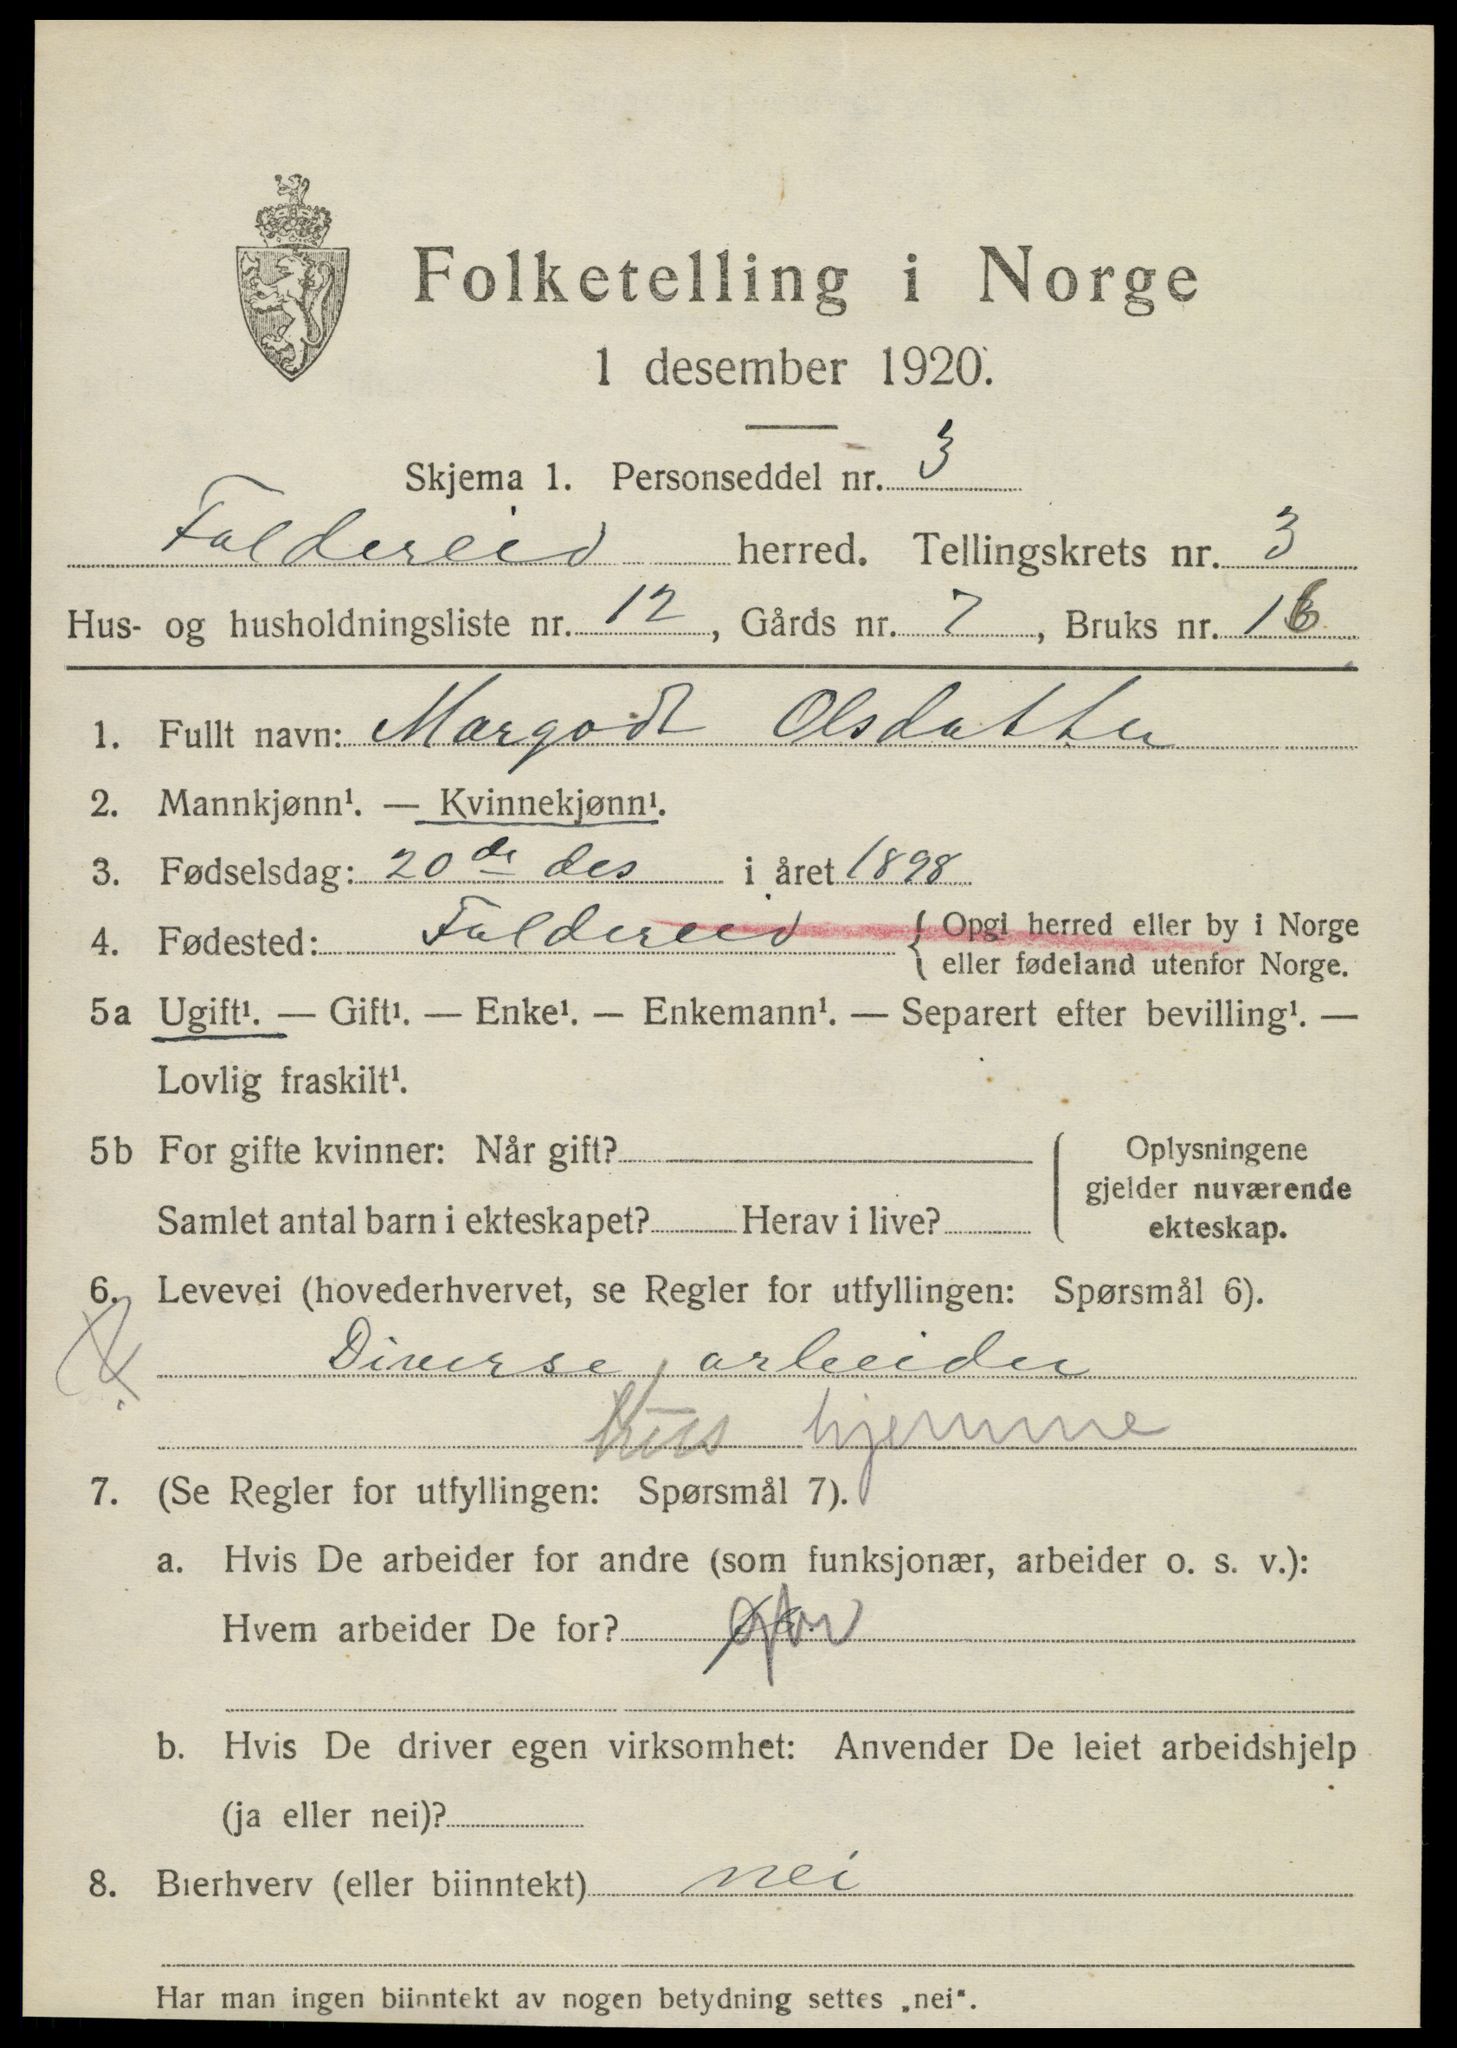 Folketelling i Norge
1 desember 1920.
Skjema 1. Personseddel nr. 3
Foldereid herred. Tellingskrets nr. 3
Hus- og husholdningsliste nr. 12, Gårds nr. 7, Bruks nr. 16
1. Fullt navn: Margodt Olsdatter
2. Mannkjønn¹. — Kvinnekjønn¹.
3. Fødselsdag: 20de des i året 1898
4. Fødested: Foldereid { Opgi herred eller by i Norge
eller fødeland utenfor Norge.
5a Ugift¹. — Gift¹. — Enke¹. — Enkemann¹. — Separert efter bevilling¹. —
Lovlig fraskilt¹.
5b For gifte kvinner: Når gift?
Samlet antal barn i ekteskapet? Herav i live?
Oplysningene
gjelder nuværende
ekteskap.
6. Levevei (hovederhvervet, se Regler for utfyllingen: Spørsmål 6).
Diverse arbeider
hjemme
7. (Se Regler for utfyllingen: Spørsmål 7).
a. Hvis De arbeider for andre (som funksjonær, arbeider o. s. v.):
Hvem arbeider De for?
b. Hvis De driver egen virksomhet: Anvender De leiet arbeidshjelp
(ja eller nei)?
8. Bierhverv (eller biinntekt) nei
Har man ingen biinntekt av nogen betydning settes „nei“.